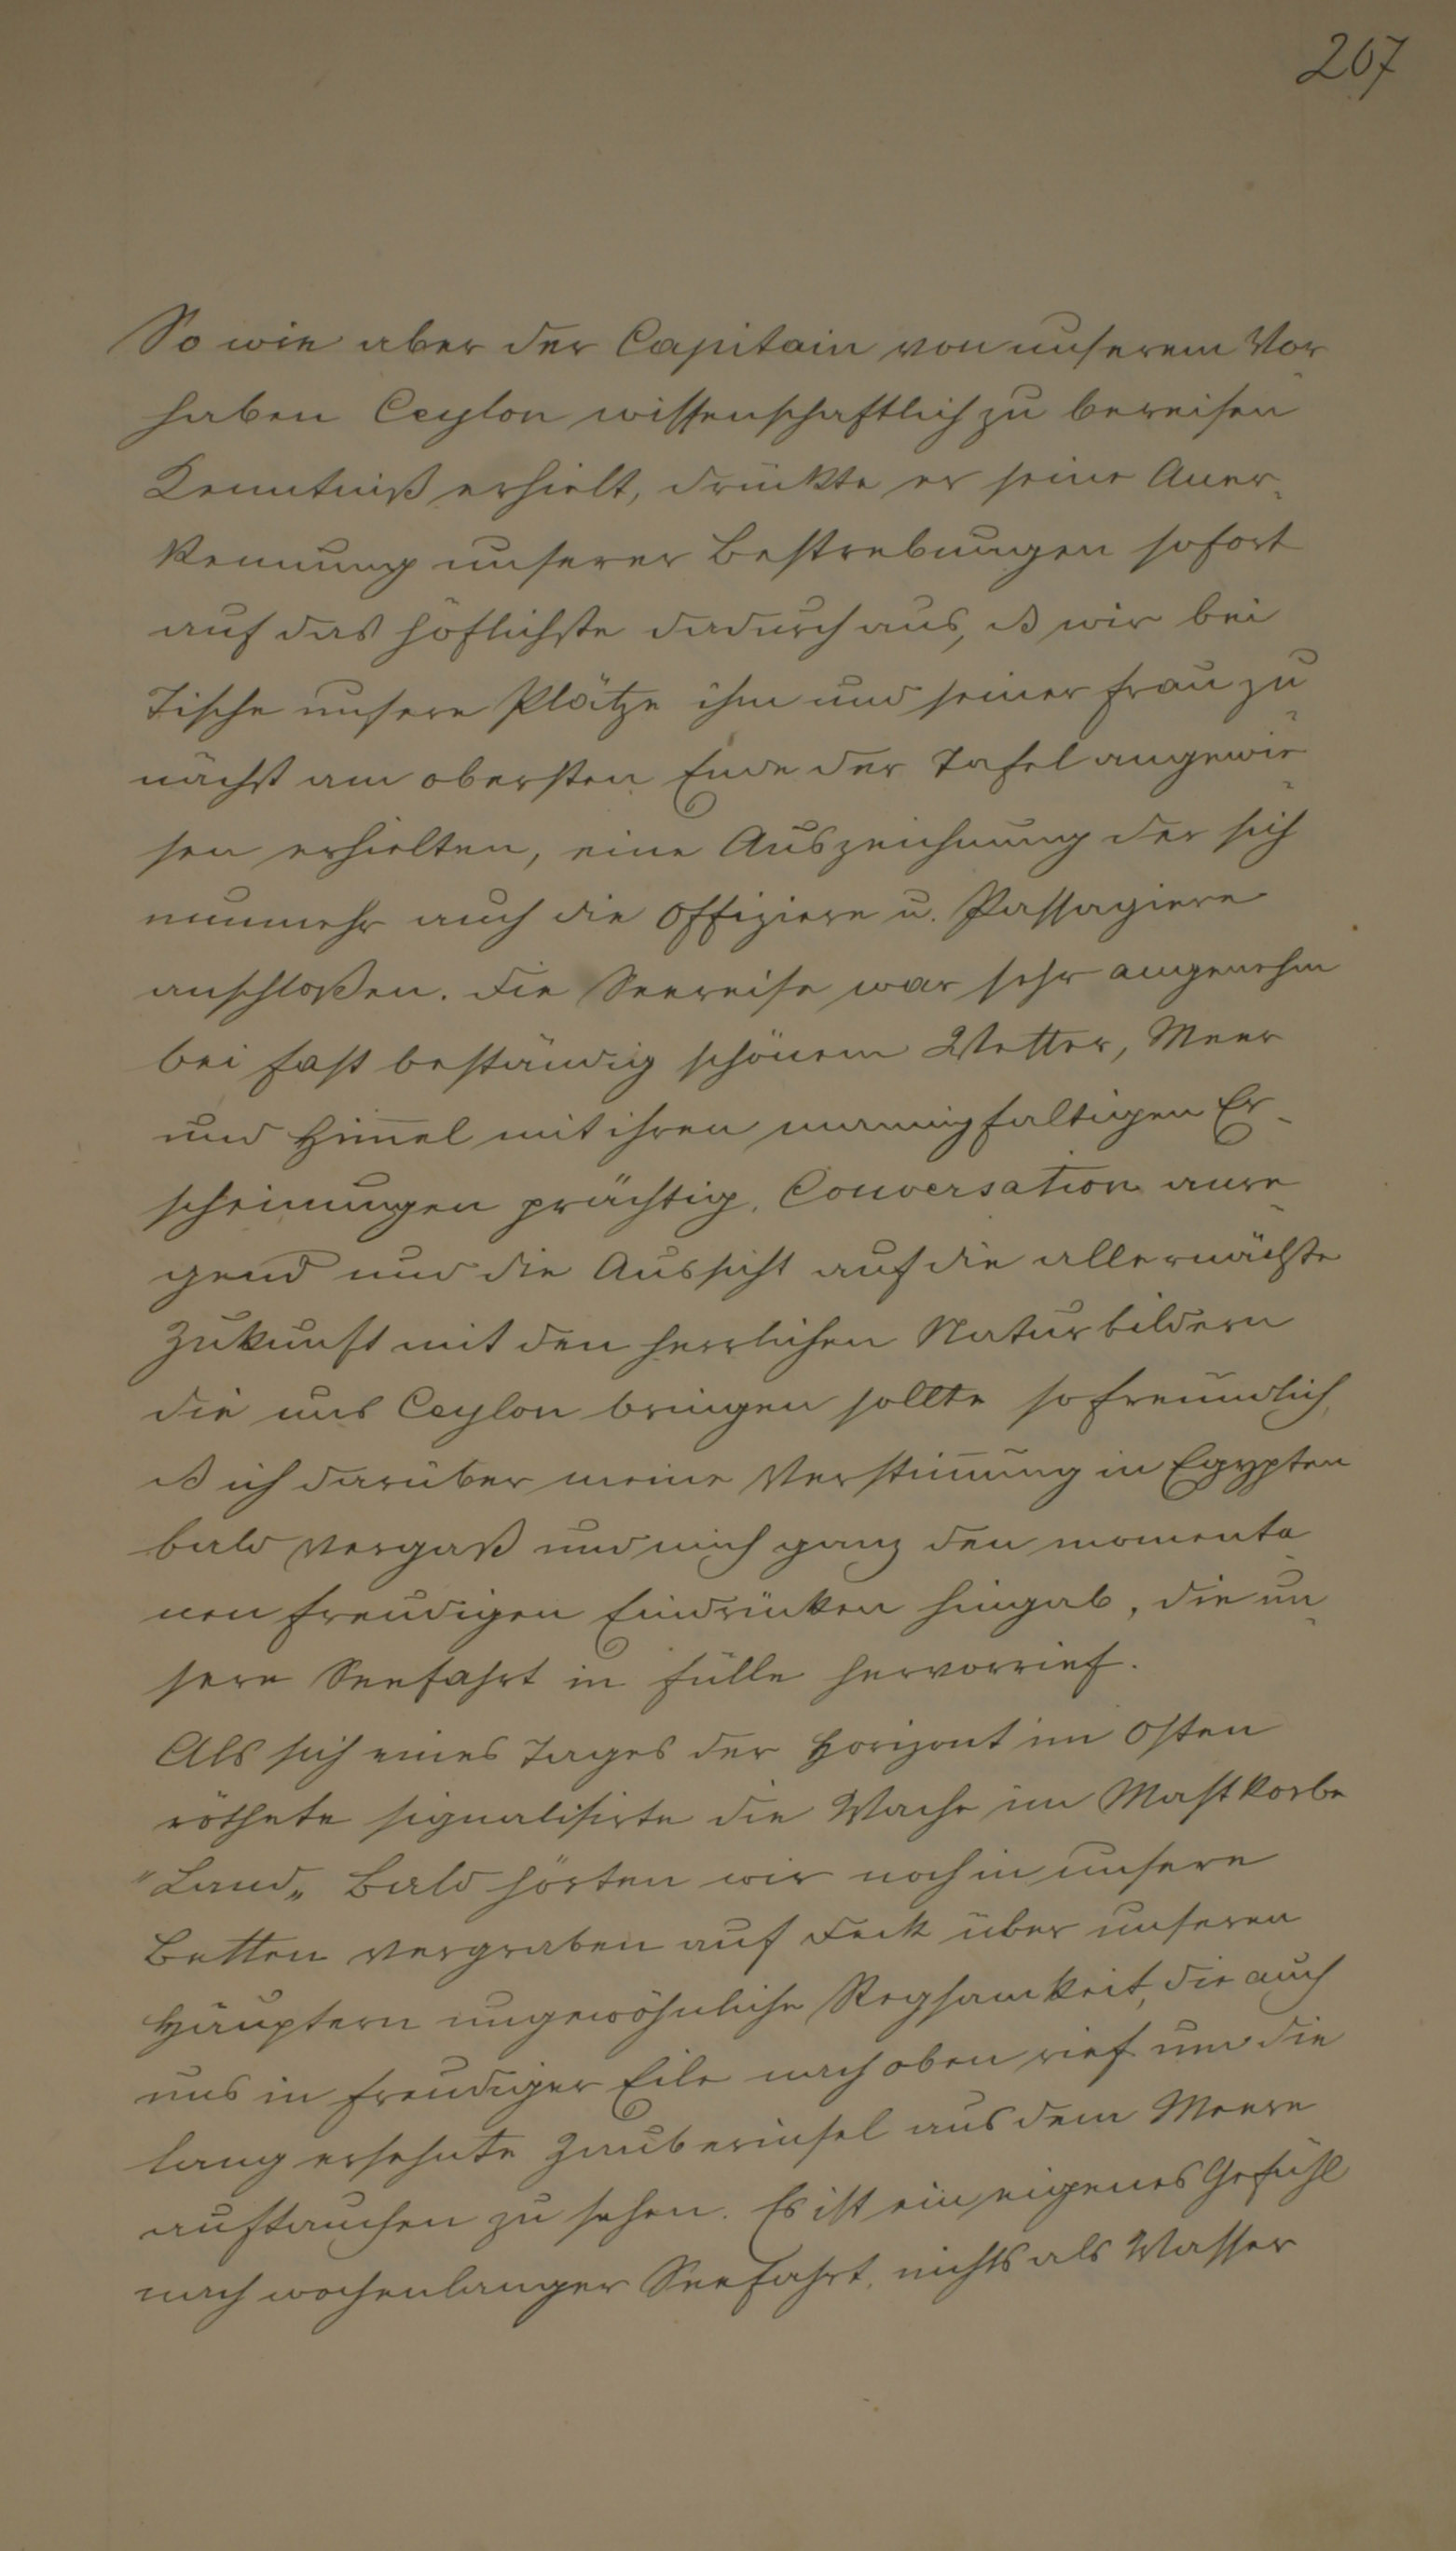 267
So wie aber der Capitain von unserem Vor-
haben Ceylon wissenschaftlich zu bereisen
Kenntniß erhielt, drückte er seine Aner-
kennung unserer Bestrebungen sofort
auf das höflichste dadurch aus, ß wir bei
Tische unsere Plätze ihm und seiner Frau zu-
nächst am obersten Ende der Tafel angewie-
sen erhielten, eine Auszeichnung der sich
nunmehr auch die Offiziere u. Passagiere
anschloßen. Die Seereise war sehr angenehm
bei fast beständig schönem Wetter, Meer
und Him̅el mit ihren mannigfaltigen Er-
scheinungen prächtig, Conversation anre-
gend und die Aussicht auf die allernächste
Zukunft mit den herrlichen Naturbildern
die uns Ceylon bringen sollte so freundlich,
ß ich darüber meine Verstim̅ung in Egypten
bald vergaß und mich ganz den momenta-
nen freudigen Eindrücken hingab, die un-
sere Seefahrt in Fülle hervorrief.
Als sich eines Tages der Horizont im Osten
röthete signalisirte die Wache im Mastkorbe
"Land„ Bald hörten wir noch in unsere
Betten vergraben auf Deck über unseren
Häuptern ungewöhnliche Regsamkeit, die auch
uns in freudiger Eile nach oben rief um die
lang ersehnte Zauberinsel aus dem Meere
auftauchen zu sehen. Es ist ein eigenes Gefühl
nach wochenlanger Seefahrt, nichts als Wasser